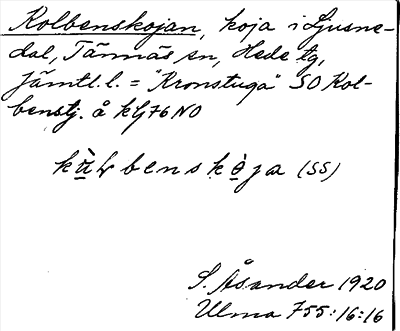 Kolbenskojan, koja i Ljusne-
dal, Tännäs sn, Hede tg,
Jämtl. l. = "Kronstuga" SO Kol-
benstj. å kbl 76 NO
benskoja (SS)
S. Åsander 1920
Ulma 755:16:16